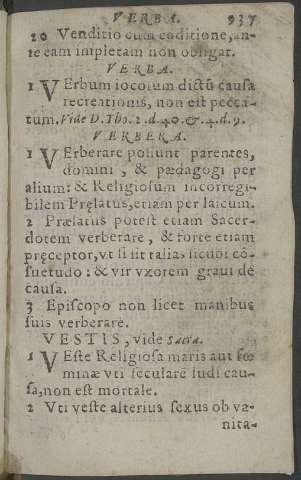 VERBA. 937
20 Venditio cum cõditione, an-
te eam impletam non obligat.
VERBA.
1 VErbum iocosum dictũ causa
recreationis, non est pecca-
tum. Vide D. Tho. 2. d. 40. & 4. d. 9.
VERBERA.
1 VErberare possunt parentes,
domini, & pædagogi per
alium: & Religiosum incorregi-
bilem Pręlatus, etiam per laicum.
2 Prælatus potest etiam Sacer-
dotem verberare, & forte etiam
pręceptor, vt si sit talia, sicubi cõ-
suetudo: & vir vxorem graui de
causa.
3 Episcopo non licet manibus
suis verberare.
VESTIS, vide Sacra.
1 VEste Religiosa maris aut fœ
minæ vti seculare ludi cau-
sa, non est mortale.
2 Vti veste alterius sexus ob va-
nita-